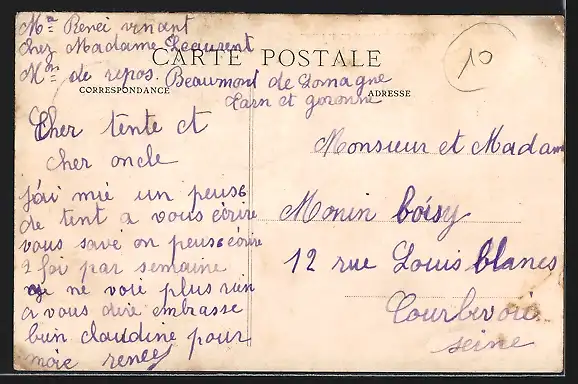 Mr Renei vincent
Chez Madame Leaurent
Mon de repos. Beaumont de Lomagne
Tarn et goronne
CARTE POSTALE
CORRESPONDANCE
ADRESSE
10
Cher tente et
cher oncle
j'ai mié un peuse
de tent a vous écrire
vous savé on peus écrire
2 foi par semaine
je ne voie plus rien
a vous dire embrasse
bien claudine pour
moie renee
Monsieur et Madam
Monin boisy
12 rue Louis blancs
Courbevoie
seine